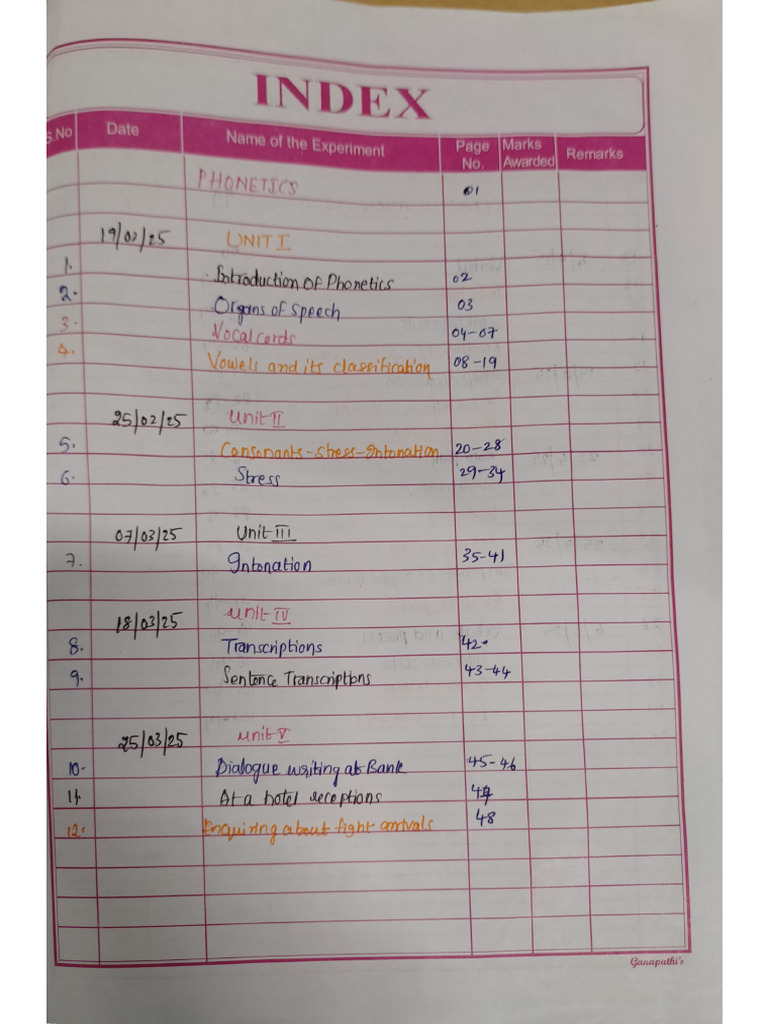 INDEX
S.No Date Name of the Experiment Page No. Marks Awarded Remarks
PHONETICS 01
19/02/25 UNIT I
1. Introduction Of Phonetics 02
2. Organs of speech 03
3. Vocal cords 04-07
4. Vowels and its classification 08-19
25/02/25 Unit II
5. Consonants-Stress-Intonation 20-28
6. Stress 29-34
07/03/25 Unit III
7. Intonation 35-41
18/03/25 Unit IV
8. Transcriptions 42
9. Sentence Transcriptions 43-44
25/03/25 Unit V
10. Dialogue writing at Bank 45-46
11. At a hotel receptions 47
12. Enquiring about fight arrivals 48
Ganapathi's